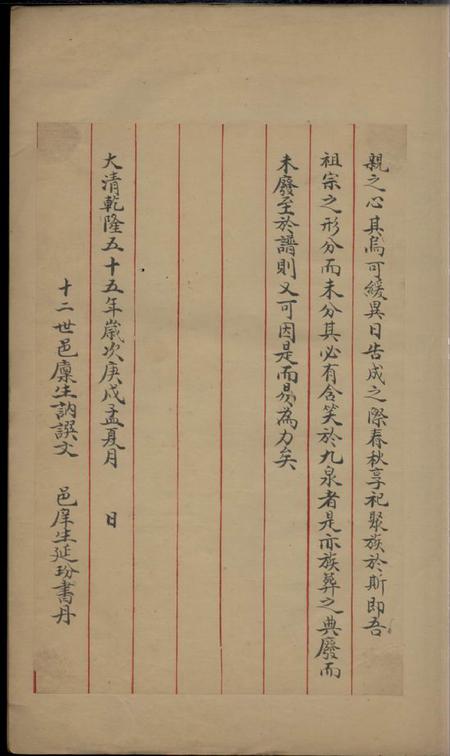 親之心其烏可緩異日告成之際春秋享祀聚族於斯即吾
祖宗之形分而未分其必有含笑於九泉者是亦族葬之典廢而
未廢至於譜則又可因是而易為力矣
大清乾隆五十五年歲次庚戌孟夏月 日
十二世邑廩生訥譔文 邑庠生延玢書丹